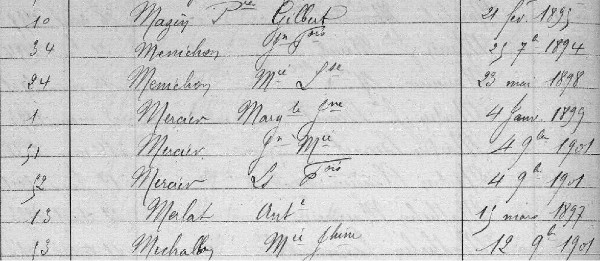 10 Magin P^re Gilbert 21 fév. 1895
34 Menichon J^n F^ois 25 7^b 1894
24 Menichon M^ie L^se 23 mai 1898
1 Mercier Marg^te J^ne 4 Janv. 1899
51 Mercier J^n M^ie 4 9^bre 1901
52 Mercier L^s F^ois 4 9^b 1901
13 Merlat Ant^e 15 mars 1897
53 M^ie 12 9^b 1901